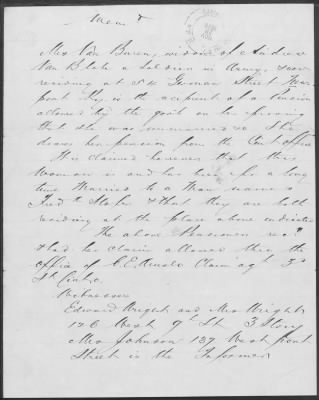 Mem't
Mrs Van Buren, widow of Andrew
Van B a Soldier in Army, now
residing at German Street
Ky, is the recipient of a Pension
allowed by the govt on her proving
that she was unmarried & She
draws her pension from the Cinti office
It is claimed however that this
Woman is and has been for a long
time Married to a Man named
Fred & that they are both
residing at the place above indicated
The above Pensioner
had her claim allowed thro the
office of C.E. Claim agt 3d
St Cinti, O.
Witnesses
Edward Wright and Mrs Wright
126 West 9th St 3 Story
Mrs Johnson 137 West front
Street is the Informer